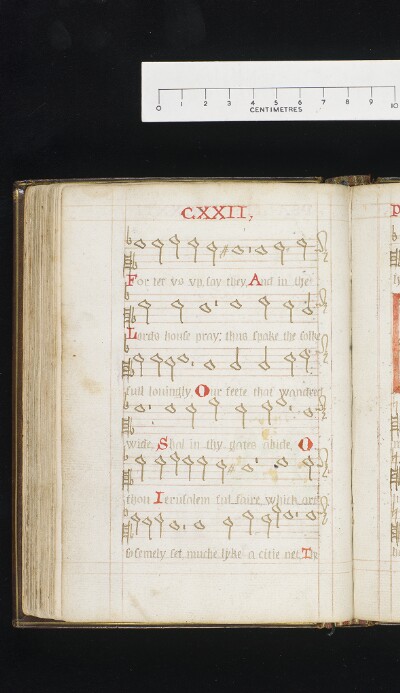 0 1 2 3 4 5 6 7 8 9 10
CENTIMETRES
C.XXII,
For ter vs vp, say they, And in the
Lords house pray; thus spake the folke
full louingly, Our feete that wandred
wide, Shal in thy gates abide, O
thou Ierusalem ful faire, which art
so semely set, muche lyke a citie net, The